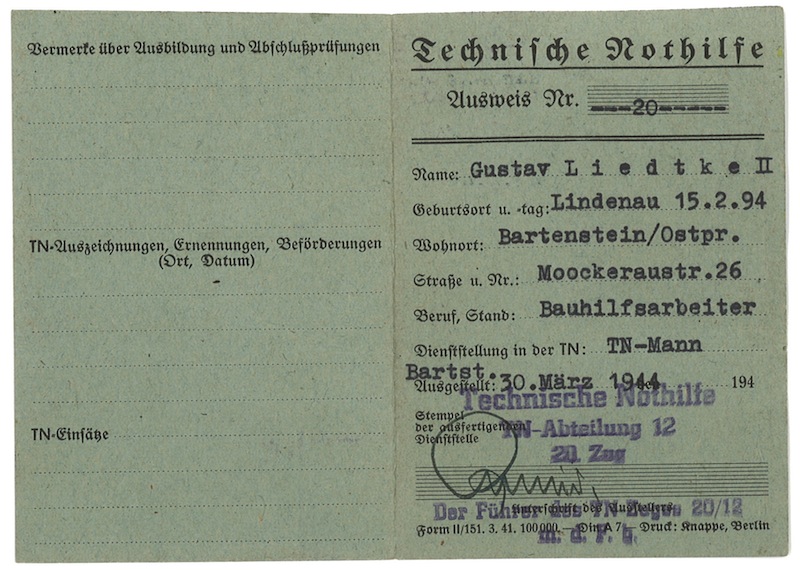 Vermerke über Ausbildung und Abschlußprüfungen
TN-Auszeichnungen, Ernennungen, Beförderungen
(Ort, Datum)
TN-Einsätze
Technische Nothilfe
Ausweis Nr. 20
Name: Gustav Liedtke II
Geburtsort u. -tag: Lindenau 15.2.94
Wohnort: Bartenstein/Ostpr.
Straße u. Nr.: Moockeraustr.26
Beruf, Stand: Bauhilfsarbeiter
Dienststellung in der TN: TN-Mann
Bartst.
Ausgestellt: 30.März 1944 194
Technische Nothilfe
Stempel
der ausfertigenden
Dienststelle
TN-Abteilung 12
20. Zug
Unterschrift des Ausstellers
Der Führer des TN-Zuges 20/12
m. d. F. b.
Form II/151. 3. 41. 100.000. — Din A 7 — Druck: Knappe, Berlin